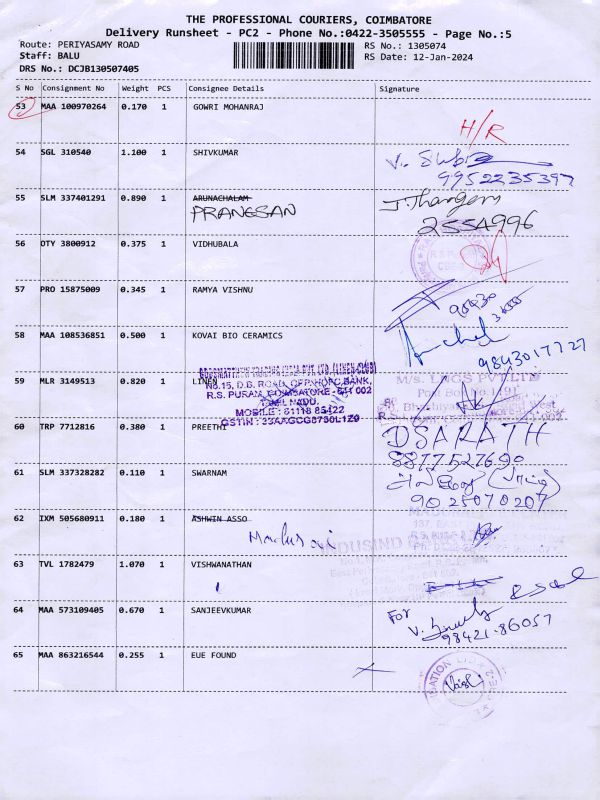 THE PROFESSIONAL COURIERS, COIMBATORE
Delivery Runsheet - PC2 - Phone No.:0422-3505555 - Page No.:5
Route: PERIYASAMY ROAD
RS No.: 1305074
Staff: BALU
RS Date: 12-Jan-2024
DRS No.: DCJB130507405
S No Consignment No Weight PCS Consignee Details Signature
53 MAA 100970264 0.170 1 GOWRI MOHANRAJ
H/R
54 SGL 310540 1.100 1 SHIVKUMAR
9952235397
55 SLM 337401291 0.890 1 ARUNACHALAM
PRANGSAN
J. Thangem
2554996
56 OTY 3800912 0.375 1 VIDHUBALA
57 PRO 15875009 0.345 1 RAMYA VISHNU
58 MAA 108536851 0.500 1 KOVAI BIO CERAMICS
9843017727
59 MLR 3149513 0.820 1 LINEN
No.15, D.B. ROAD, OPP.HDFC BANK,
R.S. PURAM, COIMBATORE - 641 002
TAMIL NADU.
MOBILE : 81118 85422
M/S. LNGS PVT LTD
60 TRP 7712816 0.380 1 PREETHI
DSARATH
8877527690
61 SLM 337328282 0.110 1 SWARNAM
9025070207
62 IXM 505680911 0.180 1 ASHWIN ASSO
63 TVL 1782479 1.070 1 VISHWANATHAN
64 MAA 573109405 0.670 1 SANJEEVKUMAR
For
98421-86057
65 MAA 863216544 0.255 1 EUE FOUND